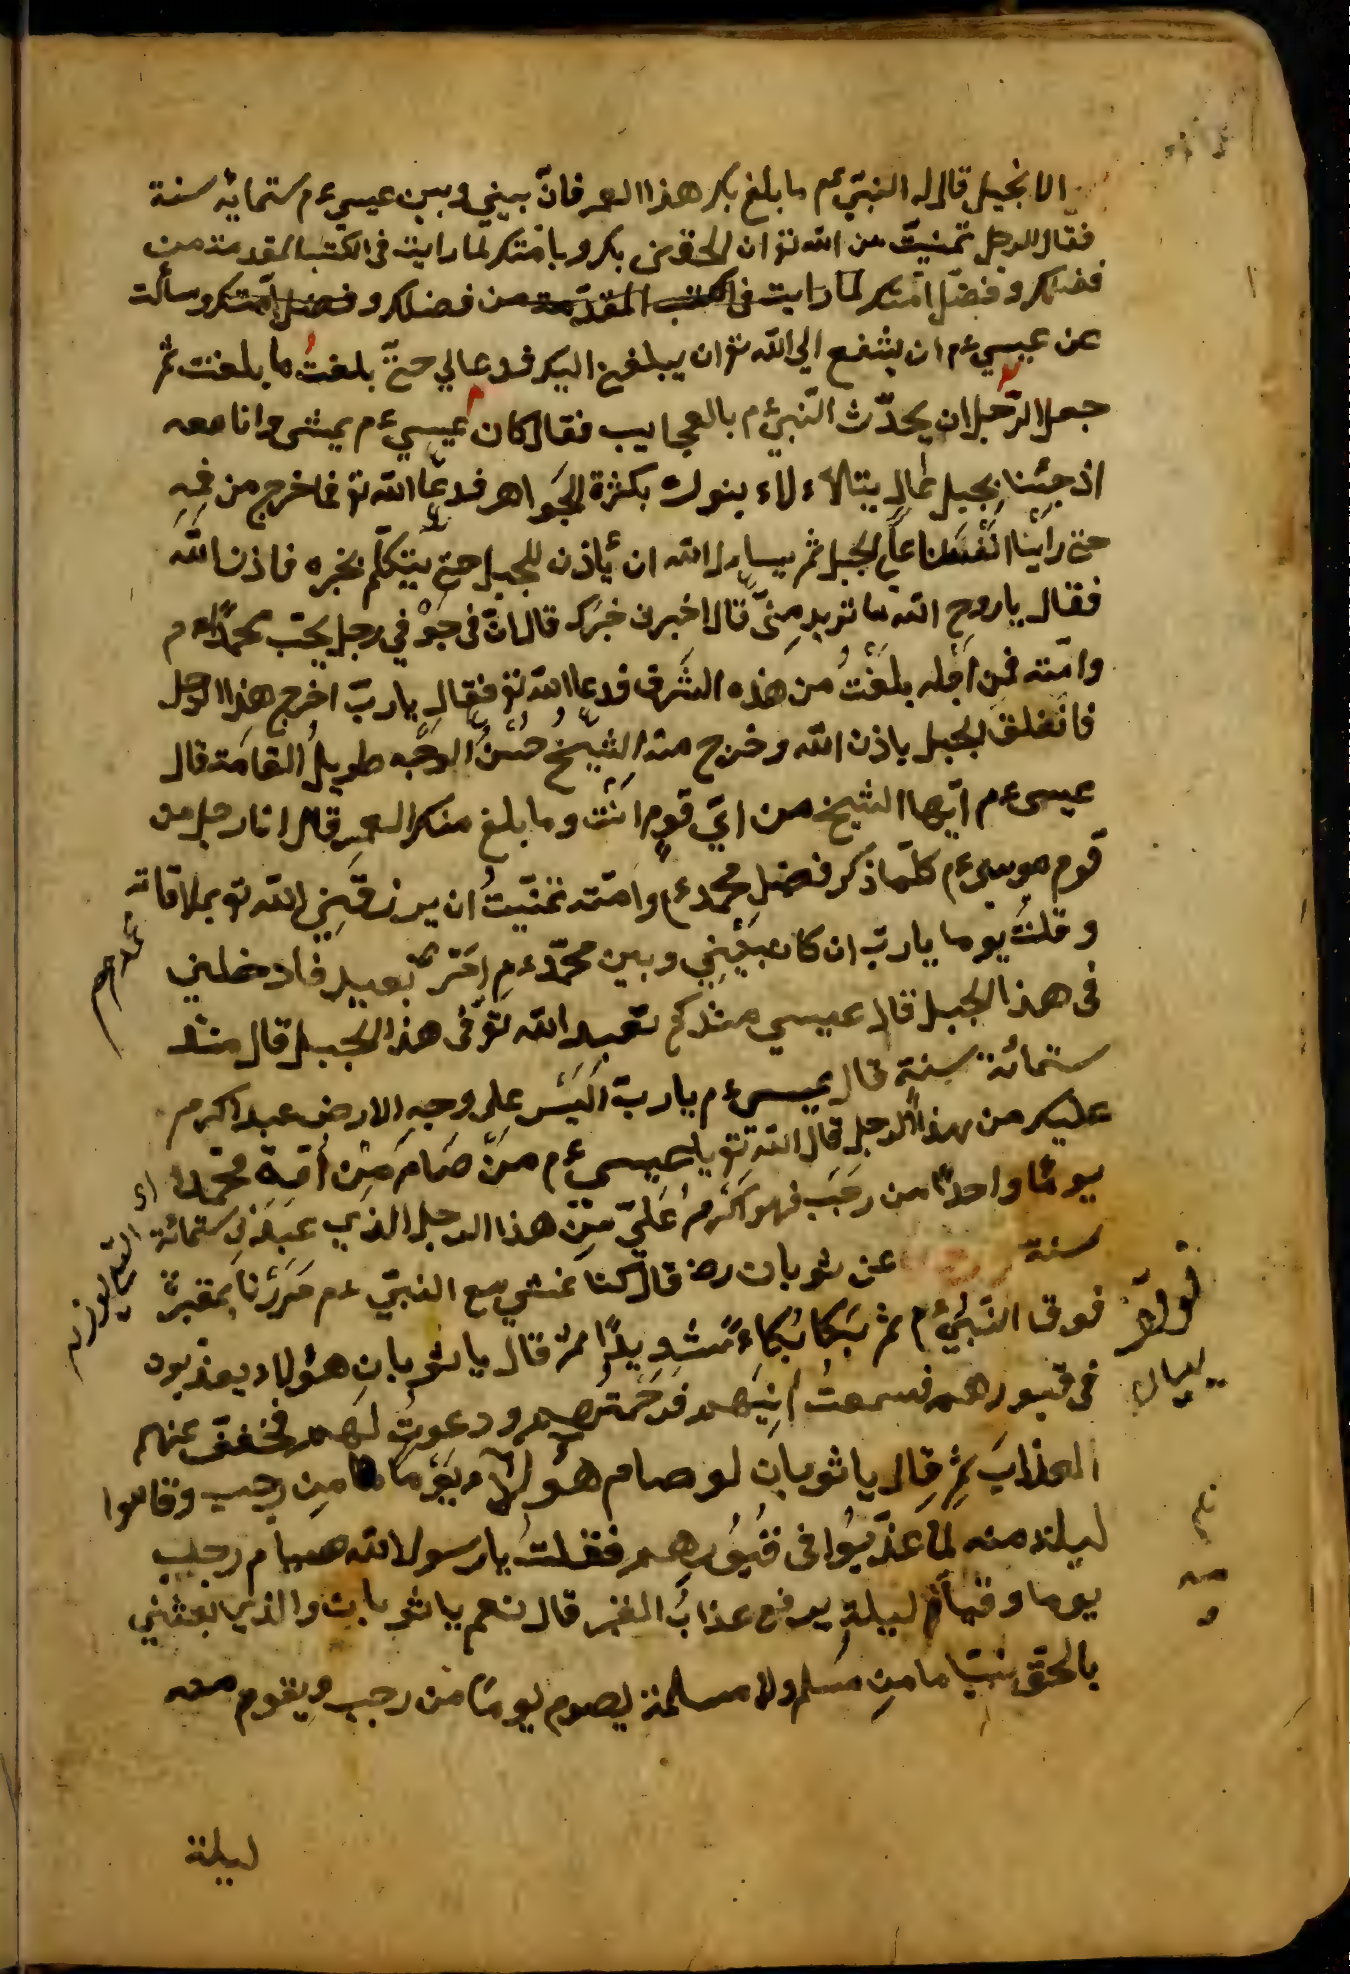 الانجيل قال له النبي ع م ما بلغ بك هذا العمر فانّ بيني وبين عيسي ع م ستمايه سنة
فقال الرجل تمنيتّ من الله تع ان الحقني بك وبامتك لما رايت في الكتب المقدمة من
فضلك وفضل امتك لما رايت في الكتب المقدّمة من فضلك وفضل امتك وسألت
عن عيسي ع م ان يشفع الي الله تع ان يبلغني اليك فدعا لي حتيّ بلغتُ ما بلغت ثم
جعل الرّجل ان يحدّث النّبي ع م بالعجايب فقال كان عيسي ع م يمشي وانا معه
اذ جئنا بجبل عال يتلألاء بنوره بكثرة الجواهر فدعا الله تع فاخرج من فمه
حتي راينا انفسنا علي الجبل ثم يسأل الله ان يأذن للجبل حتي يتكلّم بخبره فاذن الله
فقال يا روح الله ما تريد منيّ قال اخبرني خبرك قال انّ في جوفي رجل يحبّ محمدًا ع م
وامّته فمن اجله بلغتُ من هذه الشرف فدعا الله تع فقال يا ربّ اخرج هذا الرجل
فانفلق الجبل باذن الله وخرج منه الشيخ حسنُ الوجه طويل القامة قال
عيسي ع م ايّها الشيخ من ايّ قوم انت وما بلغ منك العمر قال انا رجل من
قوم موسي ع م كلّما ذكر فضل محمد ع م وامّته تمنّيتُ ان يرزقني الله تع بملاقاته
وقلتُ يوما يا ربّ ان كان بيني وبين محمّد ع م بعيد فادخلني
في هذا الجبل قال عيسي منذ كم تعبد الله تع في هذا الجبل قال منذ
ستمائة سنة قال عيسي ع م يا ربّ اليس علي وجه الارض عبد اكرم
عليك من هذا الرجل قال الله تع يا عيسي ع م من صام من أمّة محمّد
يومًا واحدًا من رجب فهو اكرم عليّ من هذا الرجل الذي عبدني ستمائة
سنة عن ثوبان رض قال كنا نمشي مع النبيّ ع م مررنا بمقبرة
فوقف النبي ع م ثم بكا بكاءً شديدًا ثم قال يا ثوبان هؤلاء يعذبون
في قبورهم فسمعتُ انينهم فرحمتهم ودعوتُ لهم فخففّ عنهم
العذابَ ثم قال يا ثوبان لو صام هؤلاء يومًا من رجب وقاموا
ليلة منه لما عذّبوا في قبورهم فقلتُ يا رسول الله صيام رجب
يوما وقيام ليلة يرفع عذاب القبر قال نعم يا ثوبان والذي بعثني
بالحقّ نبيّا ما من مسلم ولا مسلمة يصوم يومًا من رجب ويقوم منه
ليلة